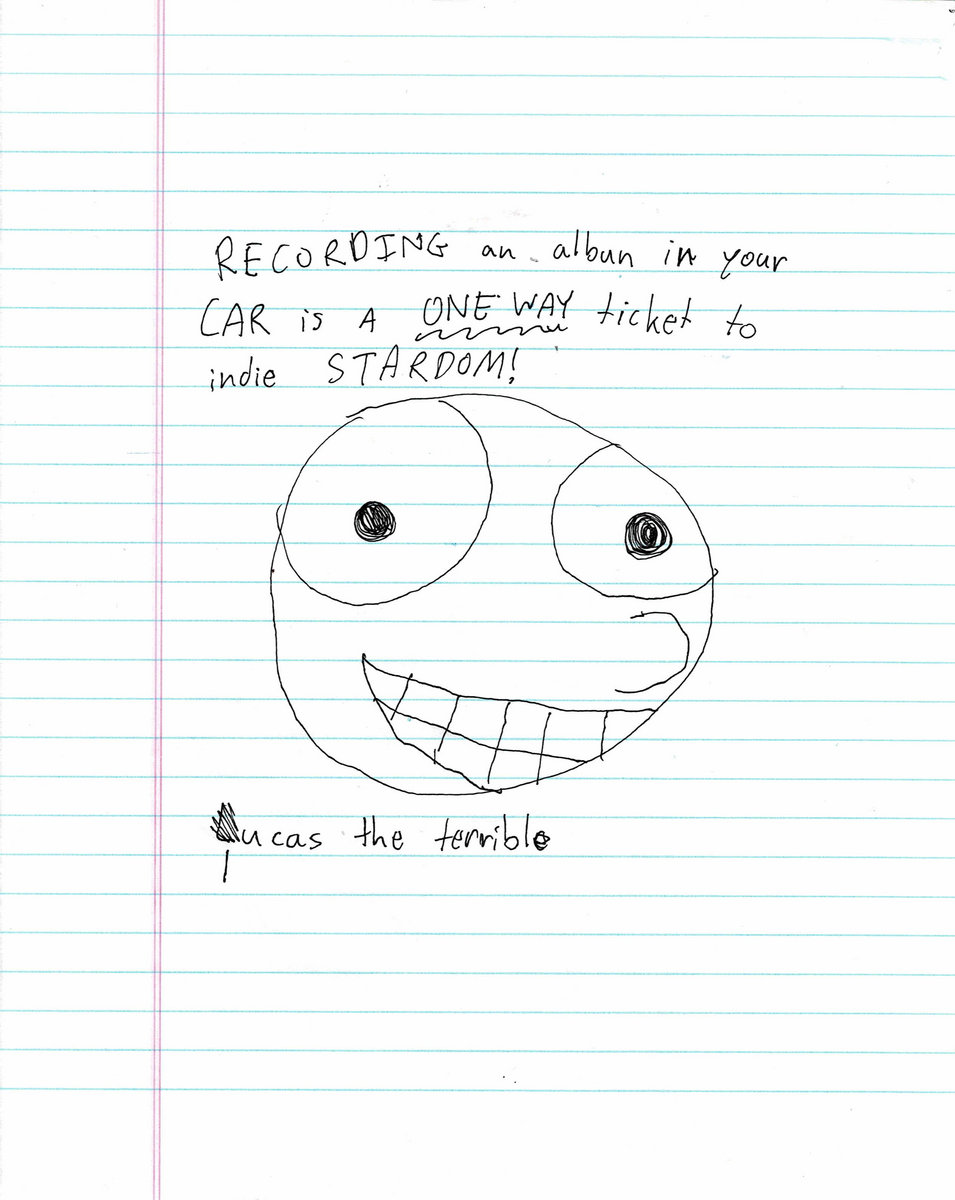 RECORDING an album in your
CAR is A ONE WAY ticket to
indie STARDOM!
Lucas the terrible